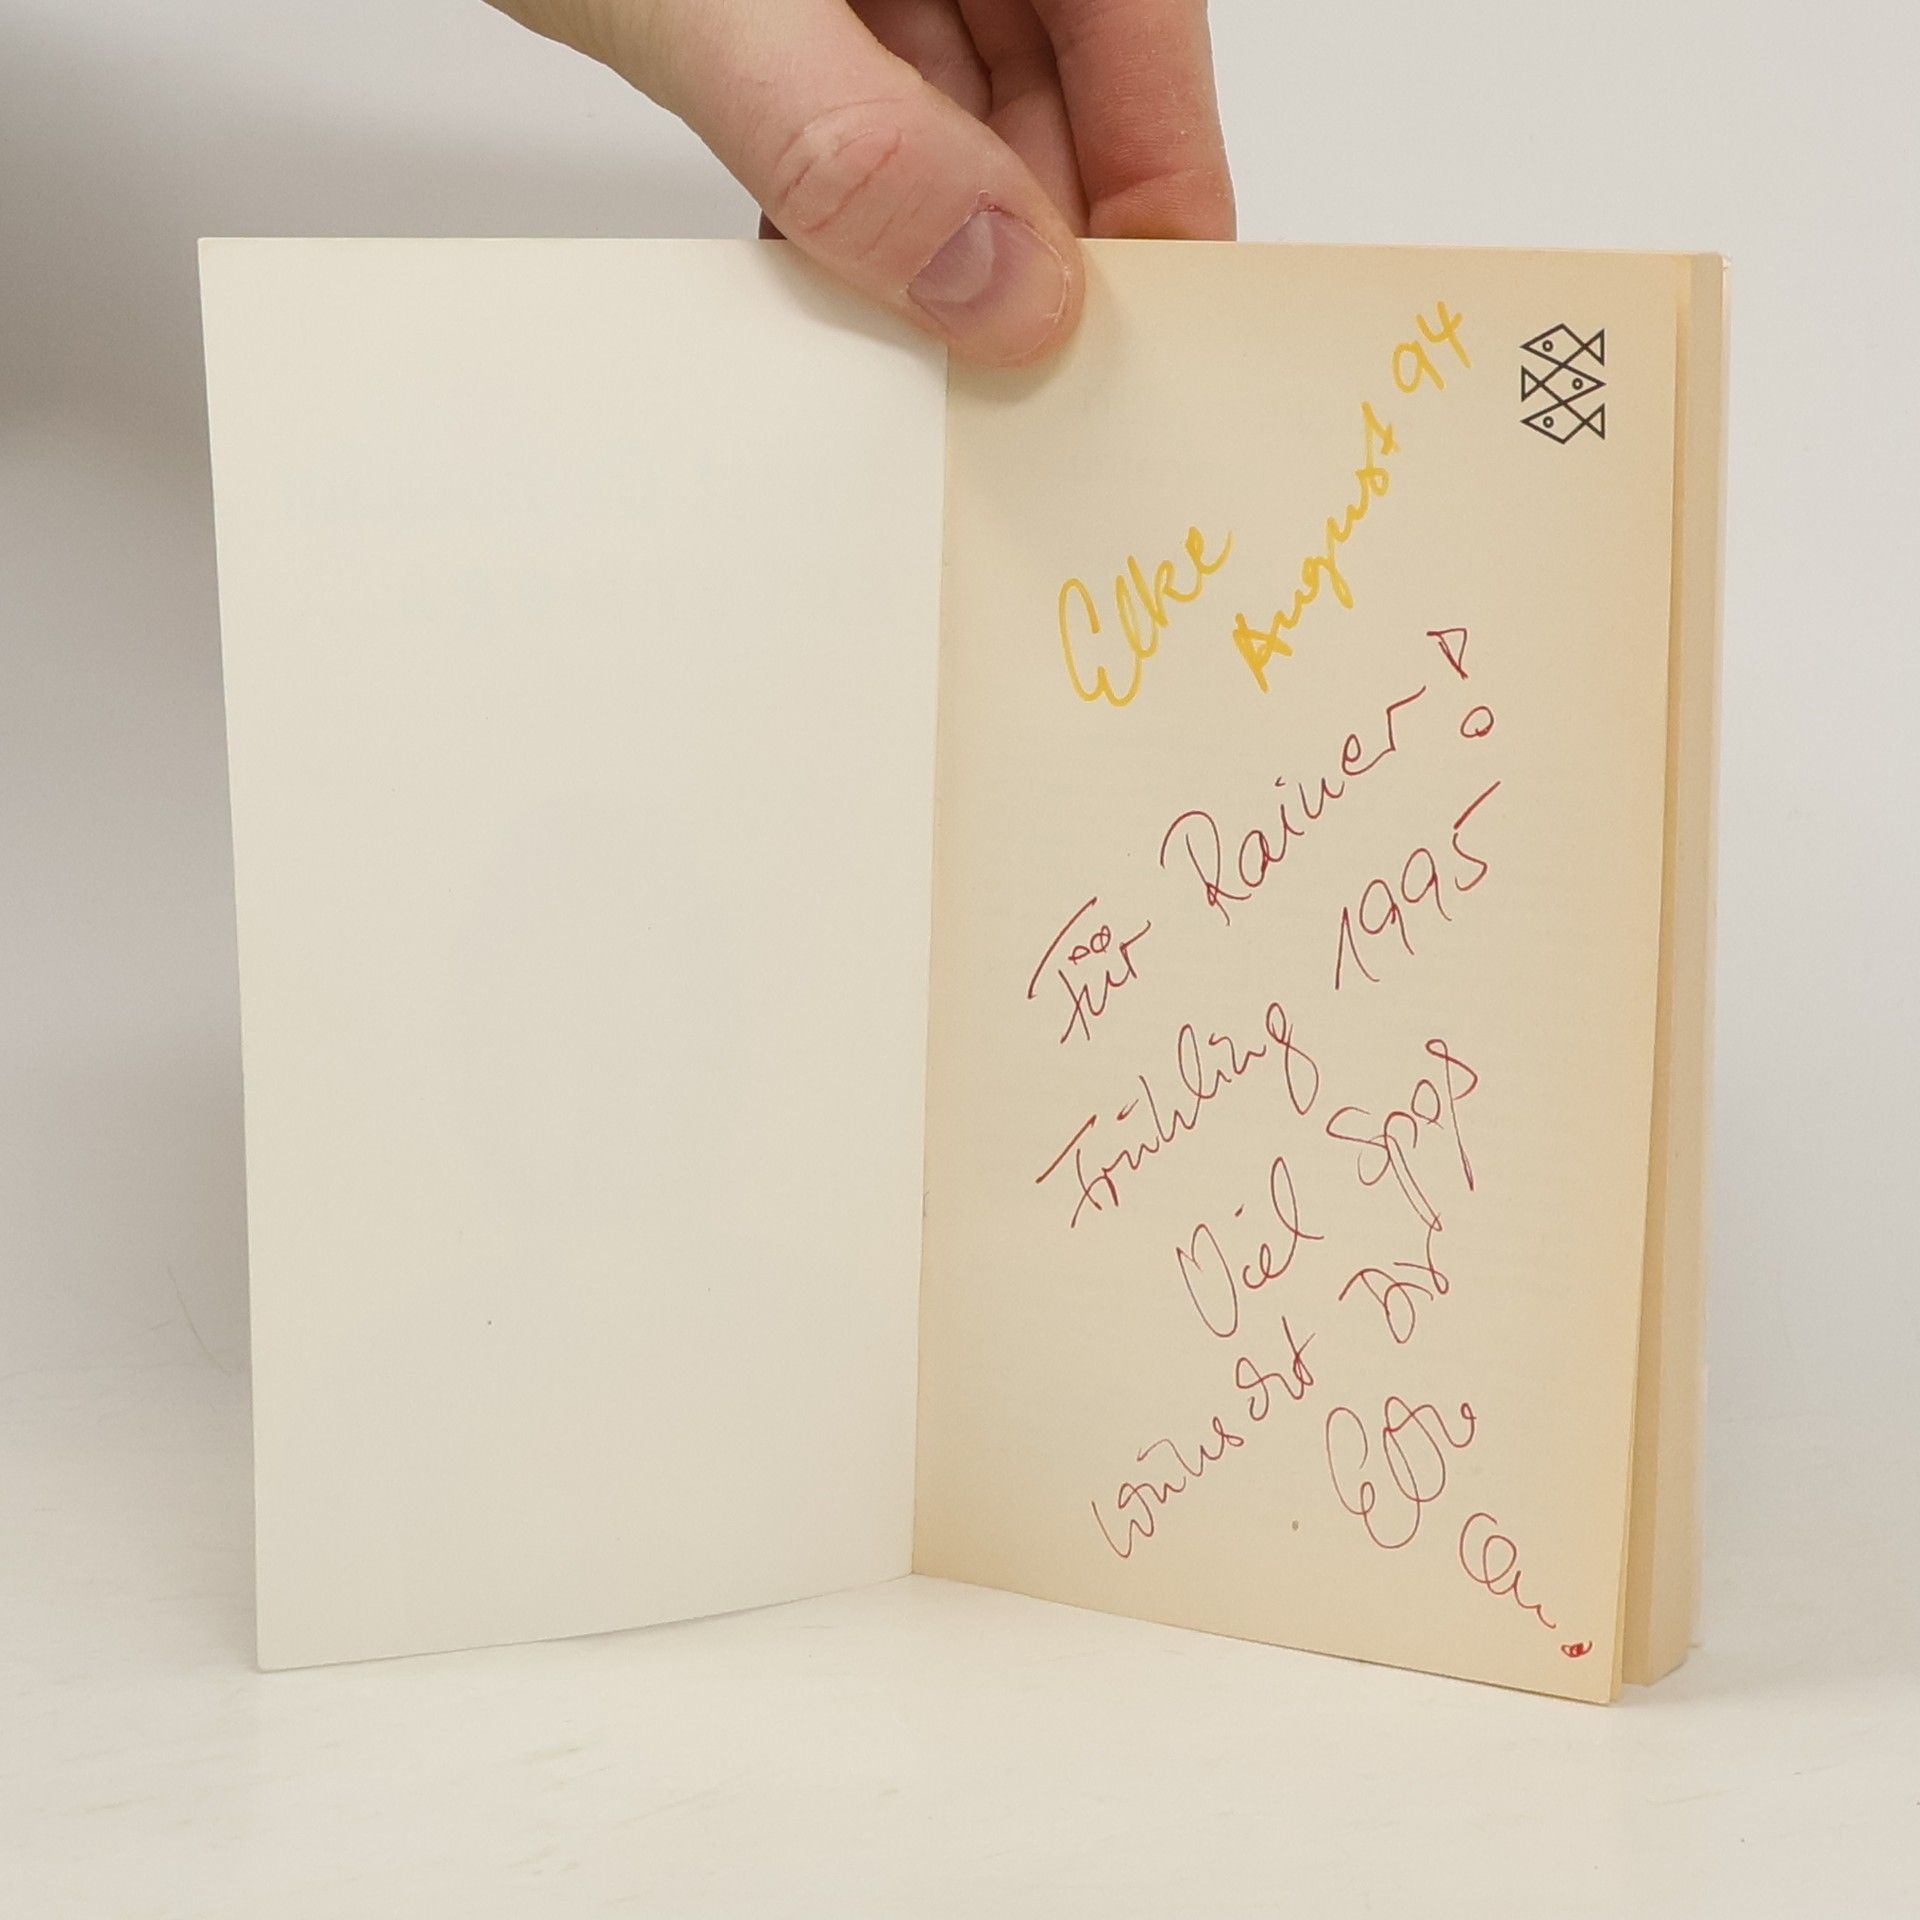 Elke
August 94
Für Rainer!
Frühling 1995
Viel Spaß
wünscht Dir
Elke